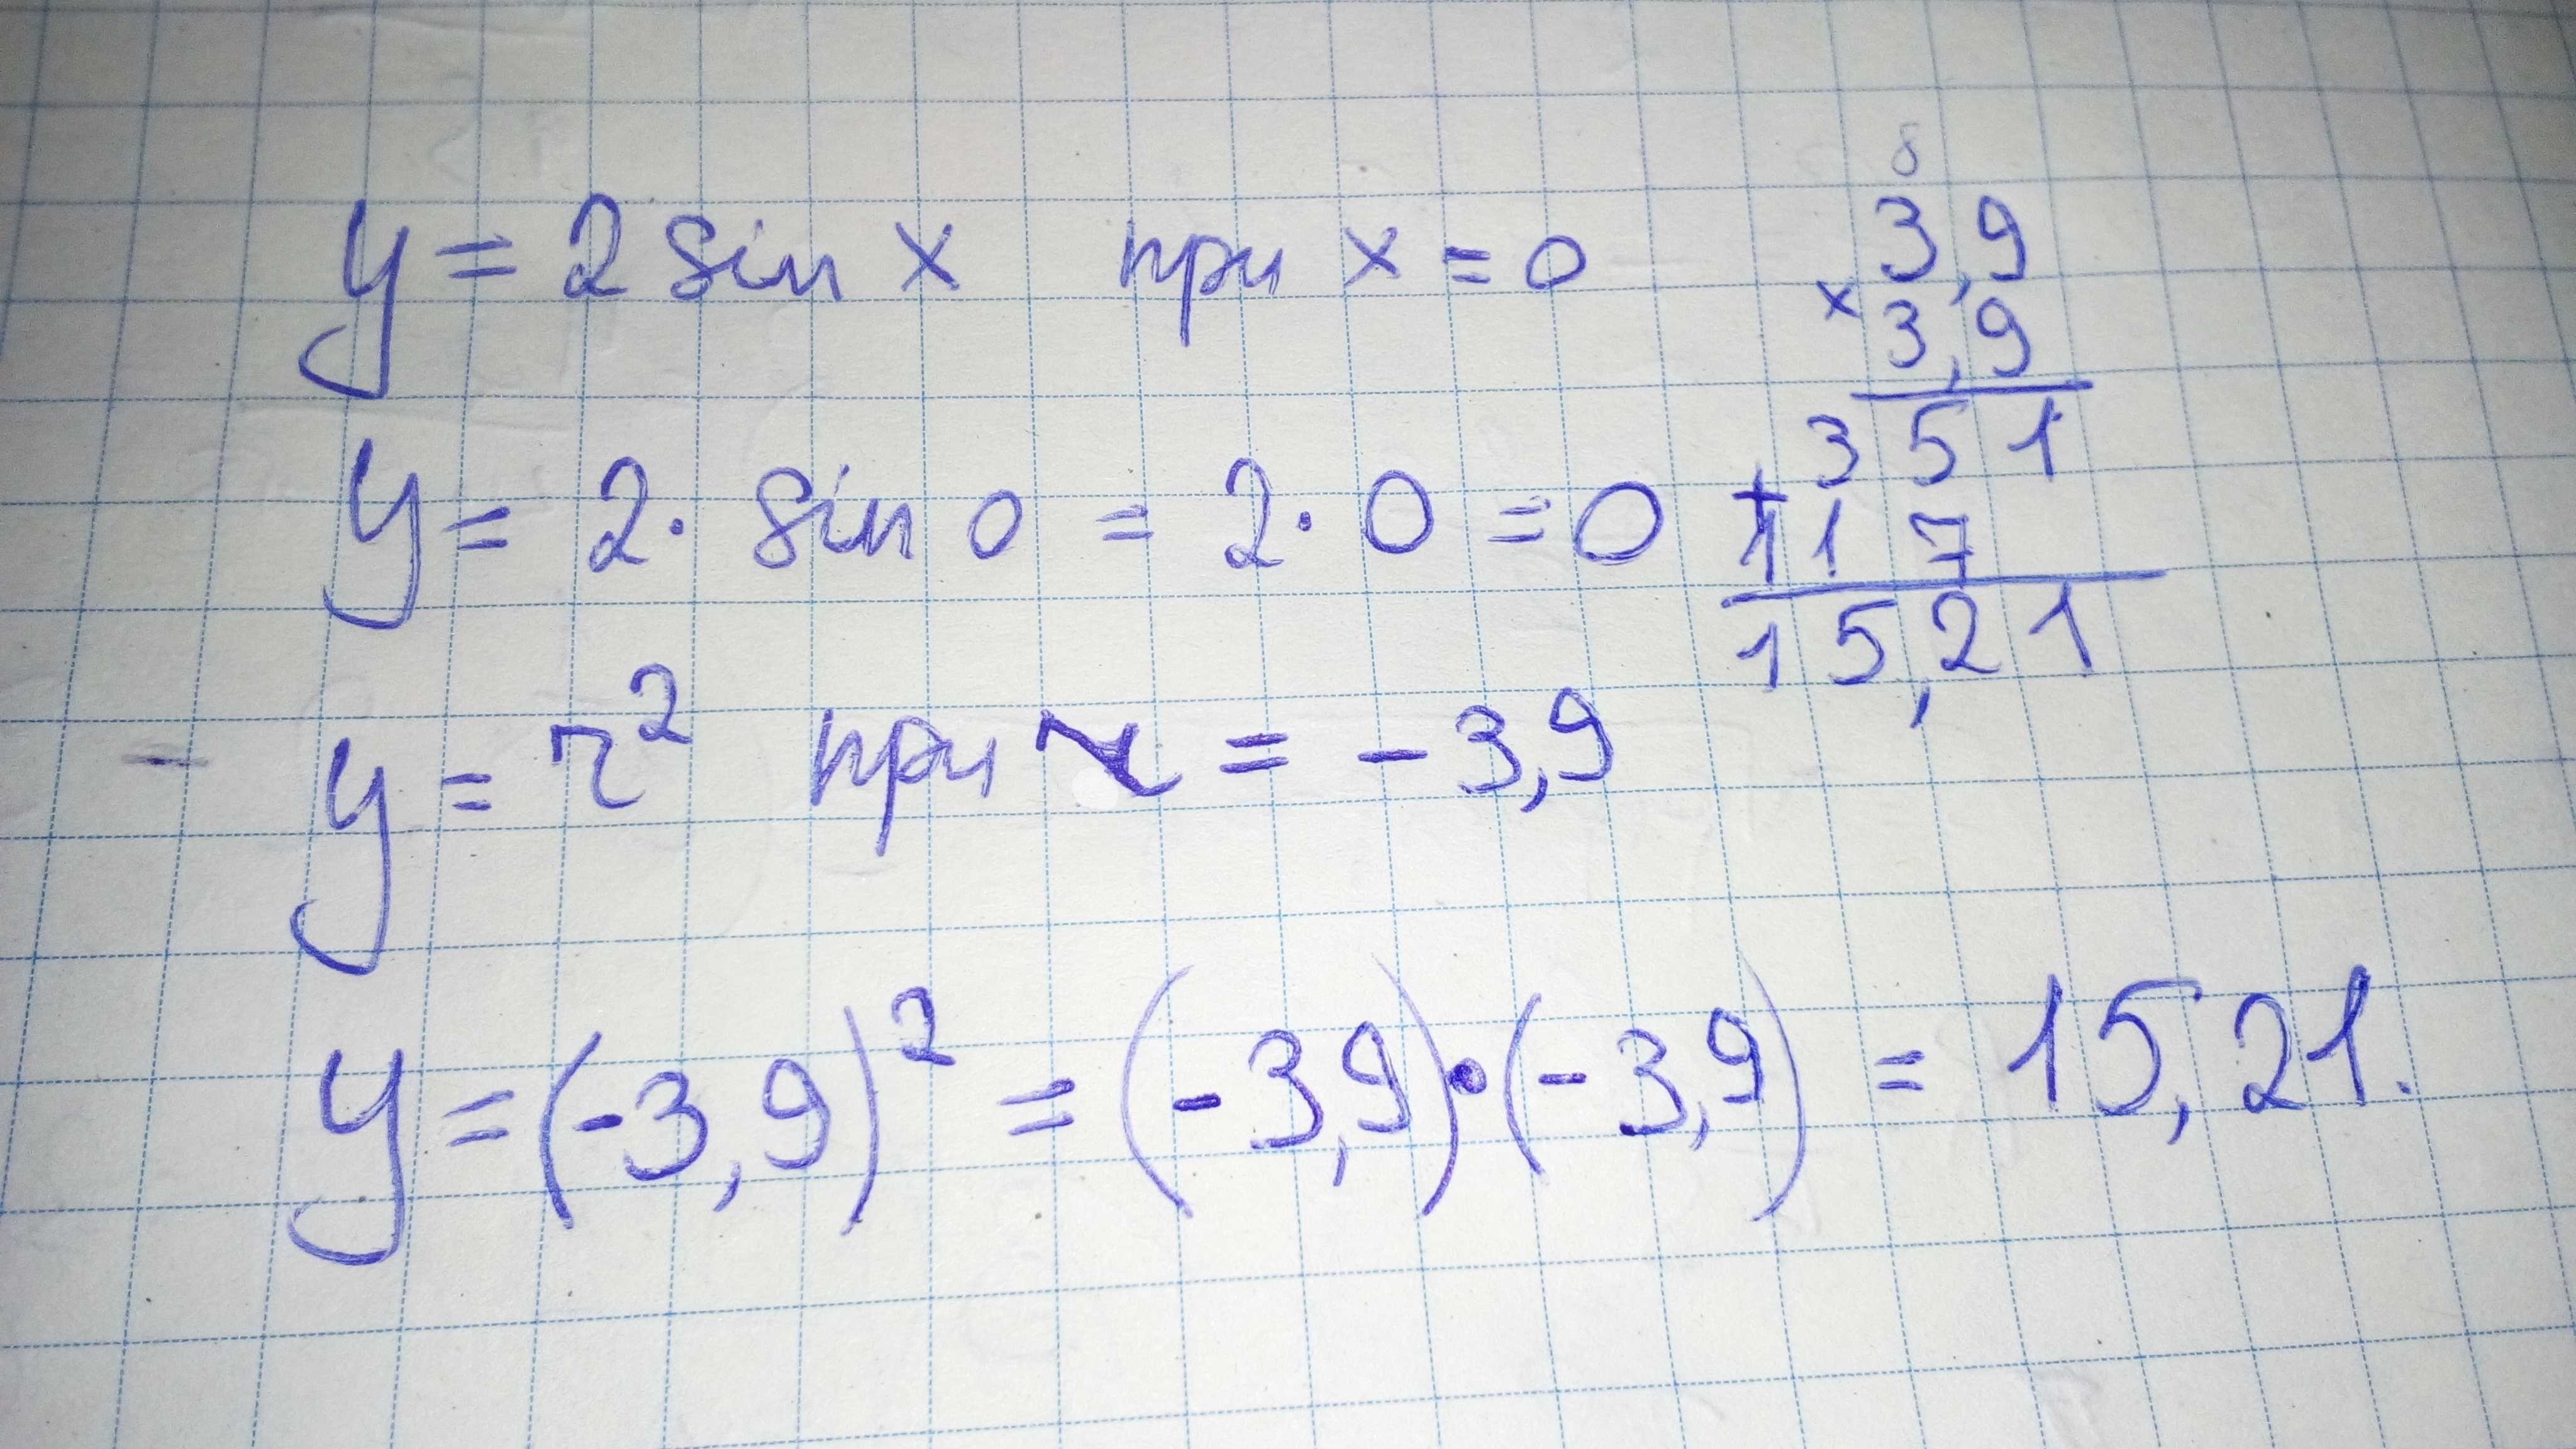 y = 2 sin x при x = 0
y = 2 · sin 0 = 2 · 0 = 0
y = r² при r = - 3,9
y = (-3,9)² = (-3,9) · (-3,9) = 15,21.
8
3,9
× 3,9
351
+ 117
15,21